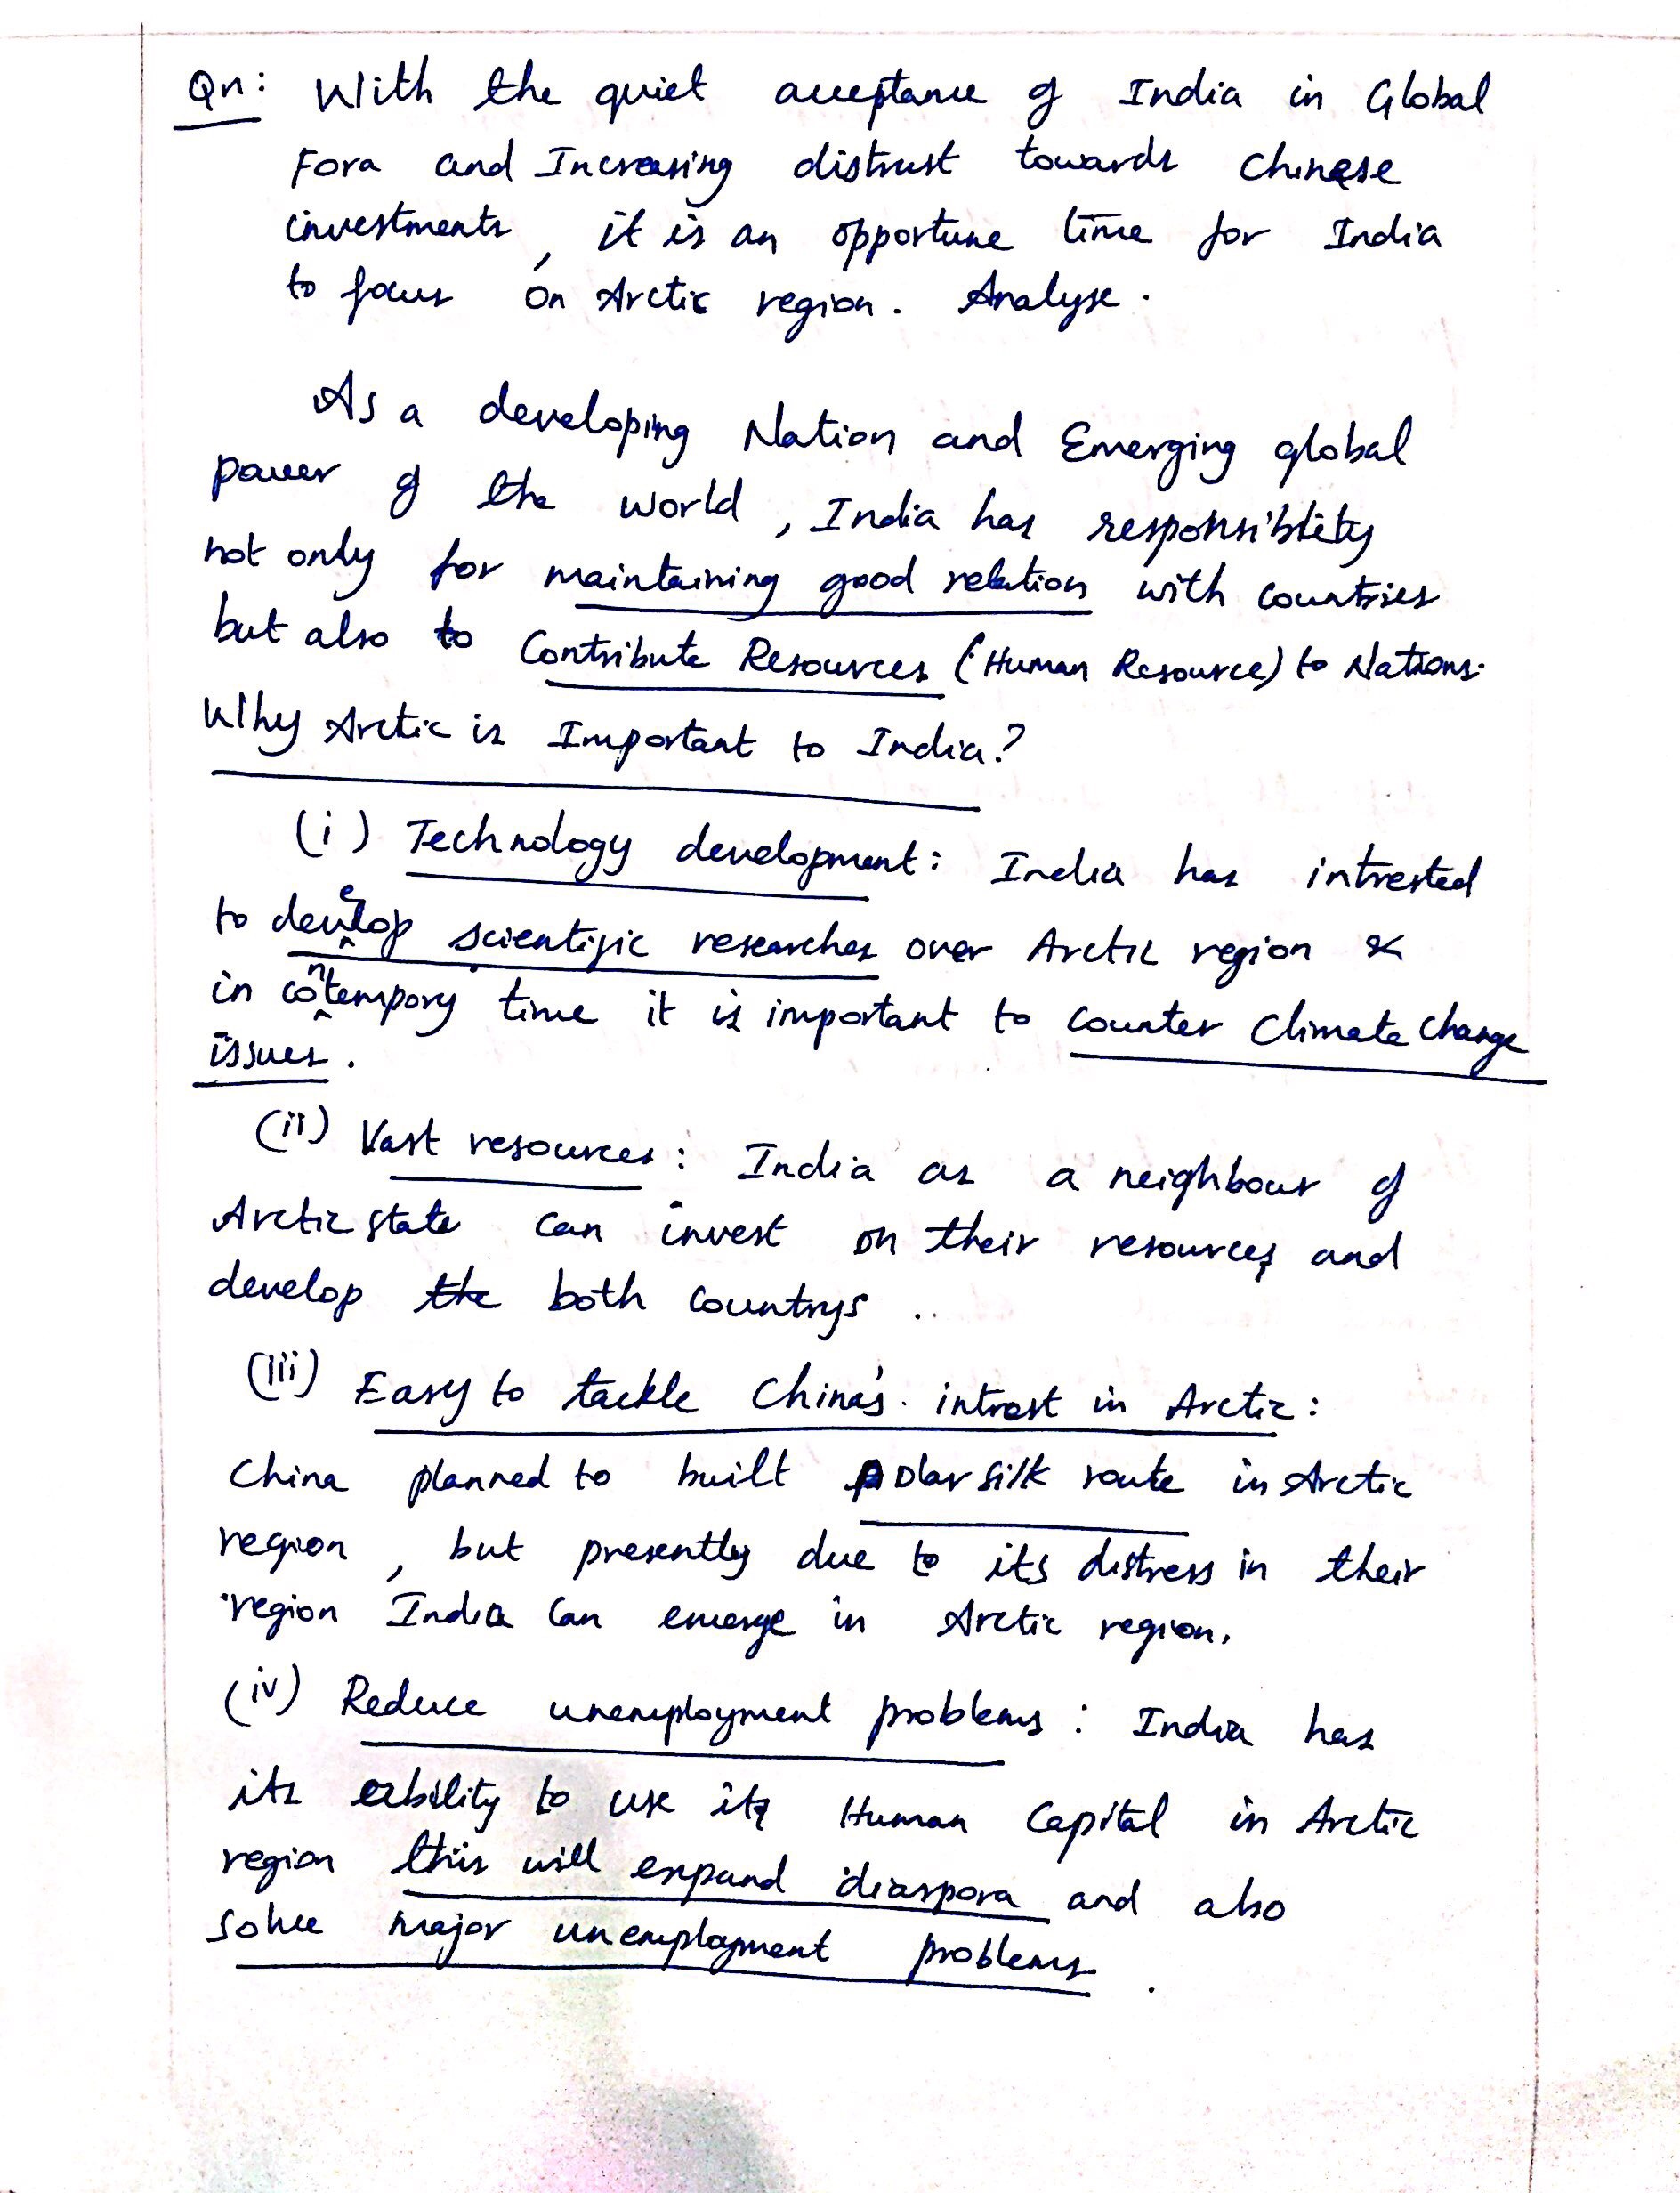 Qn: With the quiet acceptance of India in Global
Fora and Increasing distrust towards Chinese
investments, it is an opportune time for India
to focus on Arctic region. Analyse.
As a developing Nation and Emerging global
power of the world, India has responsiblity
not only for maintaining good relation with countries
but also to Contribute Resources (Human Resource) to Nations.
Why Arctic is Important to India?
(i) Technology development: India has intrested
to develop scientific researches over Arctic region &
in contempory time it is important to counter Climate change
issues.
(ii) Vast resources: India as a neighbour of
Arctic state can invest on their resources and
develop the both countrys ..
(iii) Easy to tackle China's intrest in Arctic:
China planned to built polar silk route in Arctic
region, but presently due to its distress in their
region India can emerge in Arctic region.
(iv) Reduce unemployment problems: India has
its ability to use its Human Capital in Arctic
region this will expand diaspora and also
solve major unemployment problems.